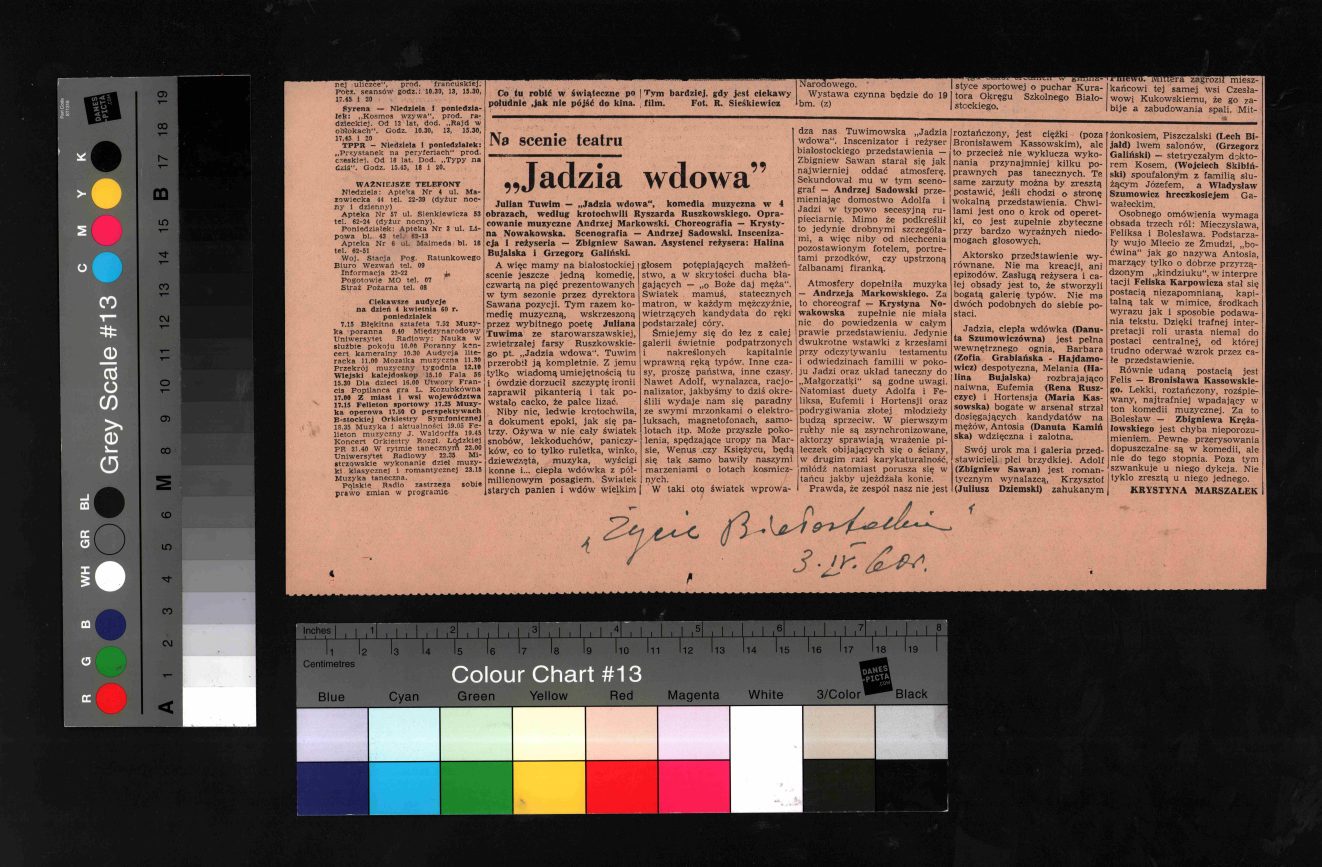 nej uliczce", prod. francuskiej.
Pocz. seansów godz.: 10.30, 13, 15.30,
17.45 i 20
Syrena — Niedziela i poniedzia-
łek: „Kosmos wzywa", prod. ra-
dzieckiej. Od 12 lat, dod. „Rajd w
obłokach". Godz. 10.30, 13, 15.30,
17.45 i 20
TPPR — Niedziela i poniedziałek:
„Przystanek na peryferiach" prod.
czeskiej. Od 18 lat. Dod. „Typy na
dziś". Godz. 15.45, 18 i 20.
WAŻNIEJSZE TELEFONY
Niedziela: Apteka Nr 4 ul. Ma-
zowiecka 44 tel. 22-39 (dyżur noc-
ny i dzienny)
Apteka Nr 57 ul. Sienkiewicza 53
tel. 62-24 (dyżur nocny).
Poniedziałek: Apteka Nr 3 ul. Li-
powa bl. 43 tel. 62-13
Apteka Nr 6 ul. Malmeda bl. 18
tel. 62-51
Woj. Stacja Pog. Ratunkowego
Biuro Wezwań tel. 09
Informacja 22-22
Pogotowie MO tel. 07
Straż Pożarna tel. 08
Ciekawsze audycje
na dzień 4 kwietnia 60 r.
poniedziałek
7.15 Błękitna sztafeta 7.52 Muzy-
ka poranna 9.40 Międzynarodowy
Uniwersytet Radiowy: Nauka w
służbie pokoju 10.00 Poranny kon-
cert kameralny 10.30 Audycja lite-
racka 11.00 Mozaika muzyczna 11.30
Przekrój muzyczny tygodnia 12.10
Wiejski kalejdoskop 15.10 Fala 56
15.30 Dla dzieci 16.00 Utwory Fran-
cis Poplanca gra L. Kozubkówna
17.00 Z miast i wsi województwa
17.15 Felieton sportowy 17.25 Muzy-
ka operowa 17.50 O perspektywach
B-stockiej Orkiestry Symfonicznej
18.35 Muzyka i aktualności 19.05 Fe-
lieton muzyczny J. Waldorffa 19.45
Koncert Orkiestry Rozgł. Łódzkiej
PR 21.40 W rytmie tanecznym 22.00
Uniwersytet Radiowy 22.35 Mi-
strzowskie wykonanie dzieł muzy-
ki klasycznej i romantycznej 23.15
Muzyka taneczna.
Polskie Radio zastrzega sobie
prawo zmian w programie
Co tu robić w świąteczne po
południe „jak nie pójść do kina.
Tym bardziej, gdy jest ciekawy
film. Fot. R. Sieśkiewicz
Narodowego.
Wystawa czynna będzie do 19
bm. (z)
styce sportowej o puchar Kura-
tora Okręgu Szkolnego Biało-
stockiego.
Pniewo. Mittera zagroził miesz-
kańcowi tej samej wsi Czesła-
wowi Kukowskiemu, że go za-
bije a zabudowania spali. Mit-
Na scenie teatru
„Jadzia wdowa"
Julian Tuwim — „Jadzia wdowa", komedia muzyczna w 4
obrazach, według krotochwili Ryszarda Ruszkowskiego. Opra-
cowanie muzyczne Andrzej Markowski. Choreografia — Krysty-
na Nowakowska. Scenografia — Andrzej Sadowski. Insceniza-
cja i reżyseria — Zbigniew Sawan. Asystenci reżysera: Halina
Bujalska i Grzegorz Galiński.
A więc mamy na białostockiej
scenie jeszcze jedną komedię,
czwartą na pięć prezentowanych
w tym sezonie przez dyrektora
Sawana pozycji. Tym razem ko-
medię muzyczną, wskrzeszoną
przez wybitnego poetę Juliana
Tuwima ze starowarszawskiej,
zwietrzałej farsy Ruszkowskie-
go pt. „Jadzia wdowa". Tuwim
przerobił ją kompletnie. Z jemu
tylko wiadomą umiejętnością tu
i ówdzie dorzucił szczyptę ironii
zaprawił pikanterią i tak po-
wstało cacko, że palce lizać.
Niby nic, ledwie krotochwila,
a dokument epoki, jak się pa-
trzy. Ożywa w nie cały światek
snobów, lekkoduchów, paniczy-
ków, co to tylko ruletka, winko,
dziewczęta, muzyka, wyścigi
konne i... ciepła wdówka z pół-
milionowym posagiem. Światek
starych panien i wdów wielkim
głosem potępiających małżeń-
stwo, a w skrytości ducha bła-
gających — „o Boże daj męża".
Światek mamuś, statecznych
matron, w każdym mężczyźnie,
wietrzących kandydata do ręki
podstarzałej córy.
Śmiejemy się do łez z całej
galerii świetnie podpatrzonych
i nakreślonych kapitalnie
wprawną ręką typów. Inne cza-
sy, proszę państwa, inne czasy.
Nawet Adolf, wynalazca, racjo-
nalizator, jakbyśmy to dziś okre-
ślili wydaje nam się paradny
ze swymi mrzonkami o elektro-
luksach, magnetofonach, samo-
lotach itp. Może przyszłe poko-
lenia, spędzające urlopy na Mar-
sie, Wenus czy Księżycu, będą
się tak samo bawiły naszymi
marzeniami o lotach kosmicz-
nych.
W taki oto światek wprowa-
dza nas Tuwimowska „Jadzia
wdowa". Inscenizator i reżyser
białostockiego przedstawienia —
Zbigniew Sawan starał się jak
najwierniej oddać atmosferę.
Sekundował mu w tym sceno-
graf — Andrzej Sadowski prze-
mieniając domostwo Adolfa i
Jadzi w typowo secesyjną ru-
pieciarnię. Mimo że podkreślił
to jedynie drobnymi szczegóła-
mi, a więc niby od niechcenia
pozostawionym fotelem, portre-
tami przodków, czy upstrzoną
falbanami firanką.
Atmosfery dopełniła muzyka
— Andrzeja Markowskiego. Za
to choreograf — Krystyna No-
wakowska zupełnie nie miała
nic do powiedzenia w całym
prawie przedstawieniu. Jedynie
dwukrotne wstawki z krzesłami
przy odczytywaniu testamentu
i odwiedzinach familii w poko-
ju Jadzi oraz układ taneczny do
„Małgorzatki" są godne uwagi.
Natomiast duety Adolfa i Fe-
liksa, Eufemii i Hortensji oraz
podrygiwania złotej młodzieży
budzą sprzeciw. W pierwszym
ruchy nie są zsynchronizowane,
aktorzy sprawiają wrażenie pi-
łeczek obijających się o ściany,
w drugim razi karykaturalność,
młódź natomiast porusza się w
tańcu jakby ujeżdżała konie.
Prawda, że zespół nasz nie jest
roztańczony, jest ciężki (poza
Bronisławem Kassowskim), ale
to przecież nie wyklucza wyko-
nania przynajmniej kilku po-
prawnych pas tanecznych. Te
same zarzuty można by zresztą
postawić, jeśli chodzi o stronę
wokalną przedstawienia. Chwi-
lami jest ono o krok od operet-
ki, co jest zupełnie zbyteczne
przy bardzo wyraźnych niedo-
mogach głosowych.
Aktorsko przedstawienie wy-
równane. Nie ma kreacji, ani
epizodów. Zasługą reżysera i ca-
łej obsady jest to, że stworzyli
bogatą galerię typów. Nie ma
dwóch podobnych do siebie po-
staci.
Jadzia, ciepła wdówka (Danu-
ta Szumowiczówna) jest pełna
wewnętrznego ognia, Barbara
(Zofia Grabiańska - Hajdamo-
wicz) despotyczna, Melania (Ha-
lina Bujalska) rozbrajająco
naiwna, Eufemia (Rena Rusz-
czyc) i Hortensja (Maria Kas-
sowska) bogate w arsenał strzał
dosięgających kandydatów na
mężów, Antosia (Danuta Kamiń
ska) wdzięczna i zalotna.
Swój urok ma i galeria przed-
stawicieli płci brzydkiej. Adolf
(Zbigniew Sawan) jest roman-
tycznym wynalazcą, Krzysztof
(Juliusz Dziemski) zahukanym
żonkosiem, Piszczalski (Lech Bi-
jałd) lwem salonów, (Grzegorz
Galiński) — stetryczałym dokto-
rem Kosem, (Wojciech Skibiń-
ski) spoufalonym z familią słu-
żącym Józefem, a Władysław
Szumowicz hreczkosiejem Ga-
wałeckim.
Osobnego omówienia wymaga
obsada trzech ról: Mieczysława,
Feliksa i Bolesława. Podstarza-
ły wujo Miecio ze Żmudzi, „bo-
ćwina" jak go nazywa Antosia,
marzący tylko o dobrze przyrzą-
dzonym „kindziuku", w interpre
tacji Feliska Karpowicza stał się
postacią niezapomnianą, kapi-
talną tak w mimice, środkach
wyrazu jak i sposobie podawa-
nia tekstu. Dzięki trafnej inter-
pretacji roli urasta niemal do
postaci centralnej, od której
trudno oderwać wzrok przez ca-
łe przedstawienie.
Równie udaną postacią jest
Felis — Bronisława Kassowskie-
go. Lekki, roztańczony, rozśpie-
wany, najtrafniej wpadający w
ton komedii muzycznej. Za to
Bolesław — Zbigniewa Kręża-
łowskiego jest chyba nieporozu-
mieniem. Pewne przerysowania
dopuszczalne są w komedii, ale
nie do tego stopnia. Poza tym
szwankuje u niego dykcja. Nie
tylko zresztą u niego jednego.
KRYSTYNA MARSZAŁEK
„Życie Białostockie"
3.IV.60r.
Grey Scale #13
DANES
PICTA
.COM
R G B WH GR BL C M Y K
A 1 2 3 4 5 6 M 8 9 10 11 12 13 14 15 B 17 18 19
Inches 1 2 3 4 5 6 7 8
Centimetres 1 2 3 4 5 6 7 8 9 10 11 12 13 14 15 16 17 18 19
Colour Chart #13
DANES
PICTA
.COM
Blue Cyan Green Yellow Red Magenta White 3/Color Black